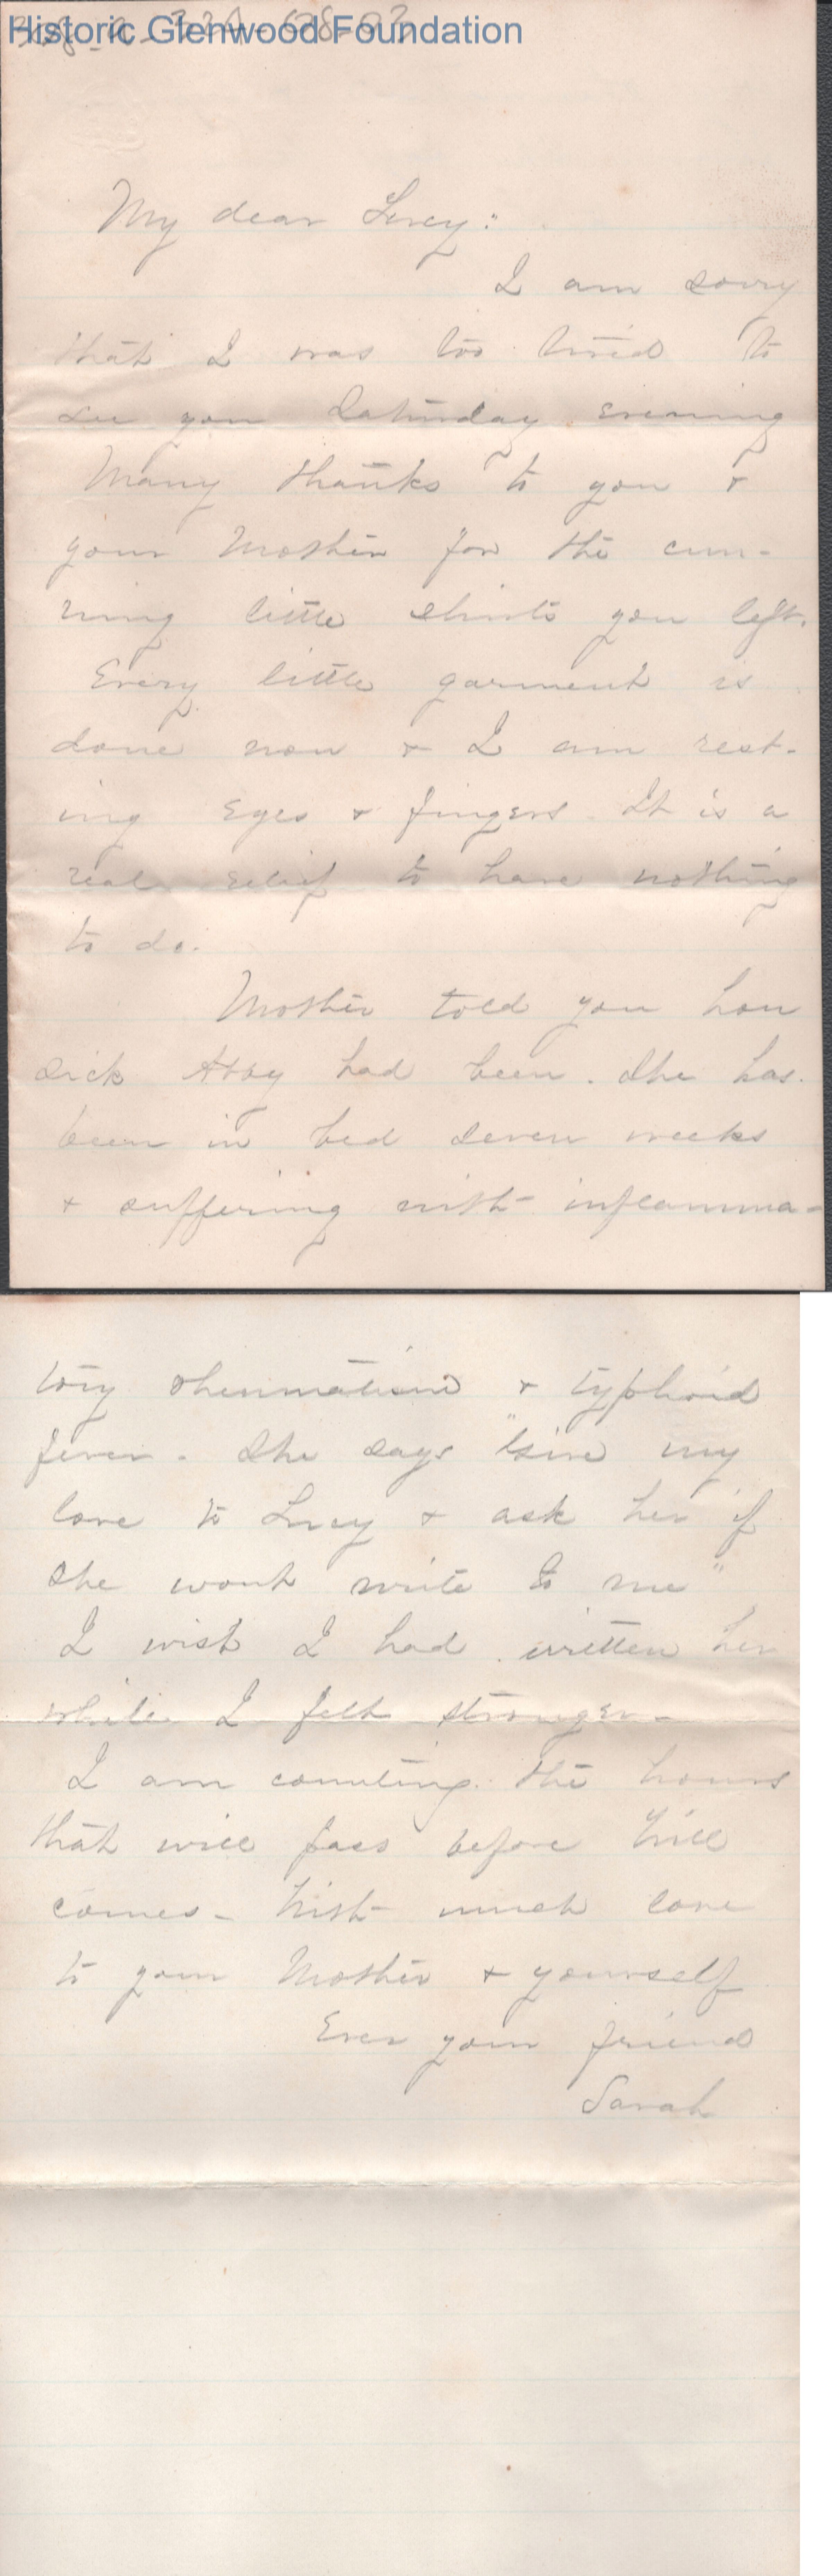 Historic Glenwood Foundation
My dear Lucy:
I am sorry
that I was too tired to
see you Saturday evening
Many thanks to you &
your Mother for the cun-
ning little shirts you left.
Every little garment is
done now & I am rest-
ing eyes & fingers. It is a
real relief to have nothing
to do.
Mother told you how
sick Abby had been. She has
been in bed seven weeks
& suffering with inflamma-
tory rheumatism & typhoid
fever. She says "Give my
love to Lucy & ask her if
she wont write to me"
I wish I had written her
while I felt stronger.
I am counting the hours
that will pass before Will
comes. With much love
to your Mother & yourself
Ever your friend
Sarah